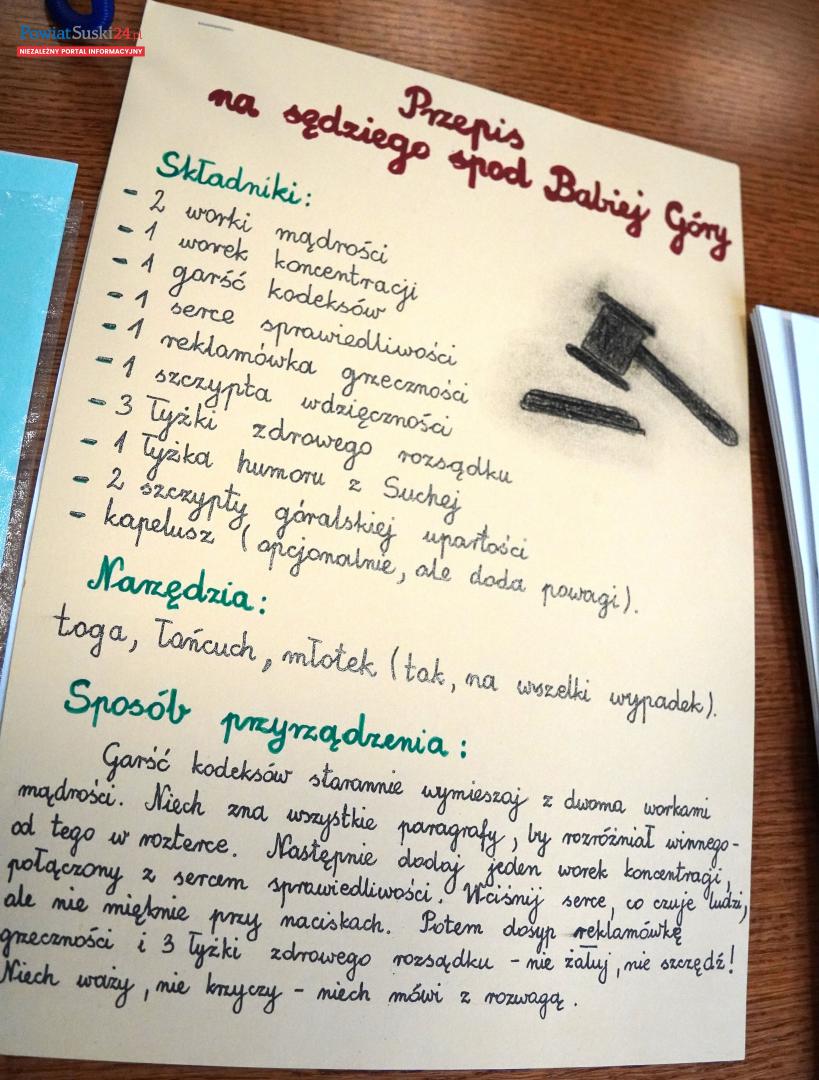 PowiatSuski24.pl
NIEZALEŻNY PORTAL INFORMACYJNY
Przepis
na sędziego spod Babiej Góry
Składniki:
- 2 worki mądrości
- 1 worek koncentracji
- 1 garść kodeksów
- 1 serce sprawiedliwości
- 1 reklamówka grzeczności
- 1 szczypta wdzięczności
- 3 łyżki zdrowego rozsądku
- 1 łyżka humoru z Suchej
- 2 szczypty góralskiej upartości
- kapelusz (opcjonalnie, ale doda powagi).
Narzędzia:
toga, łańcuch, młotek (tak, na wszelki wypadek).
Sposób przyrządzenia:
Garść kodeksów starannie wymieszaj z dwoma workami
mądrości. Niech zna wszystkie paragrafy, by rozróżniał winnego-
od tego w rozterce. Następnie dodaj jeden worek koncentragi,
połączony z sercem sprawiedliwości. Wciśnij serce, co czuje ludzi,
ale nie mięknie przy naciskach. Potem dosyp reklamówkę
grzeczności i 3 łyżki zdrowego rozsądku - nie żałuj, nie szczędź!
Niech waży, nie krzyczy - niech mówi z rozwagą.